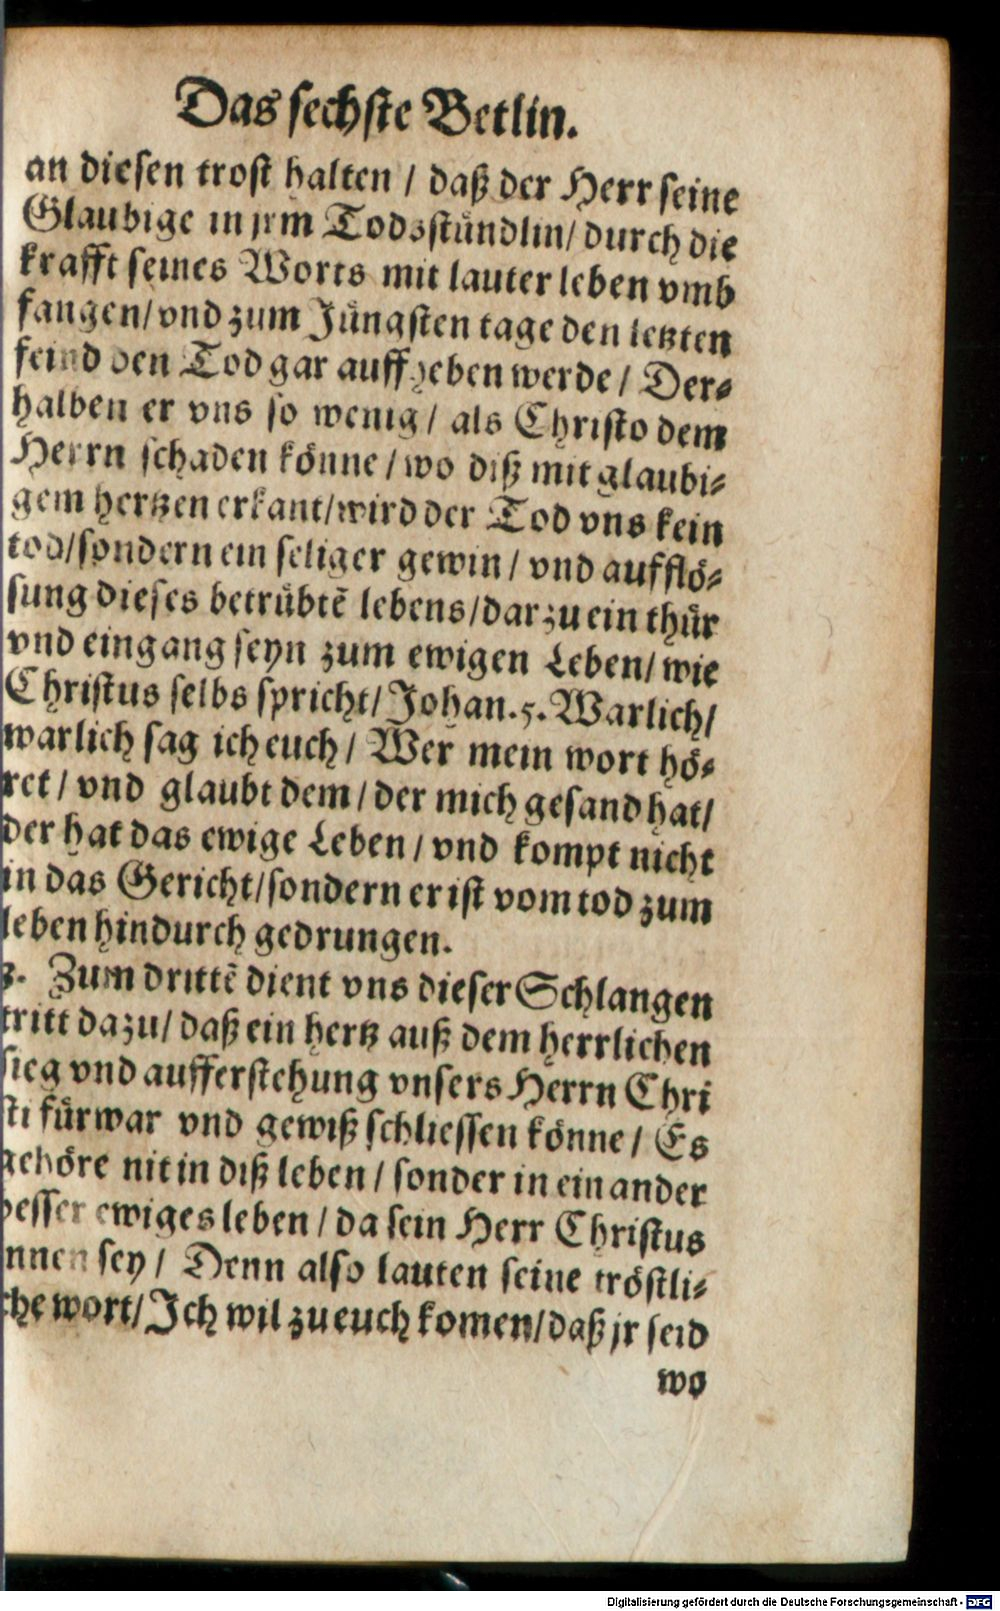 Das sechste Betlin.
an diesen trost halten / daß der Herr seine
Glaubige in jrm Todsstündlin / durch die
krafft seines Worts mit lauter leben vmb
fangen / vnd zum Jüngsten tage den letzten
feind den Tod gar auffheben werde / Der-
halben er vns so wenig / als Christo dem
Herrn schaden könne / wo diß mit glaubi-
gem hertzen erkant / wird der Tod vns kein
tod / sondern ein seliger gewin / vnd aufflö-
sung dieses betrübtẽ lebens / darzu ein thür
vnd eingang seyn zum ewigen Leben / wie
Christus selbs spricht / Johan. 5. Warlich /
warlich sag ich euch / Wer mein wort hö-
ret / vnd glaubt dem / der mich gesand hat /
der hat das ewige Leben / vnd kompt nicht
in das Gericht / sondern er ist vom tod zum
leben hindurch gedrungen.
3. Zum drittẽ dient vns dieser Schlangen
tritt dazu / daß ein hertz auß dem herrlichen
sieg vnd aufferstehung vnsers Herrn Chri
sti fürwar vnd gewiß schliessen könne / Es
gehöre nit in diß leben / sonder in ein ander
besser ewiges leben / da sein Herr Christus
innen sey / Denn also lauten seine tröstli-
che wort / Ich wil zu euch komen / daß jr seid
wo
Digitalisierung gefördert durch die Deutsche Forschungsgemeinschaft - DFG